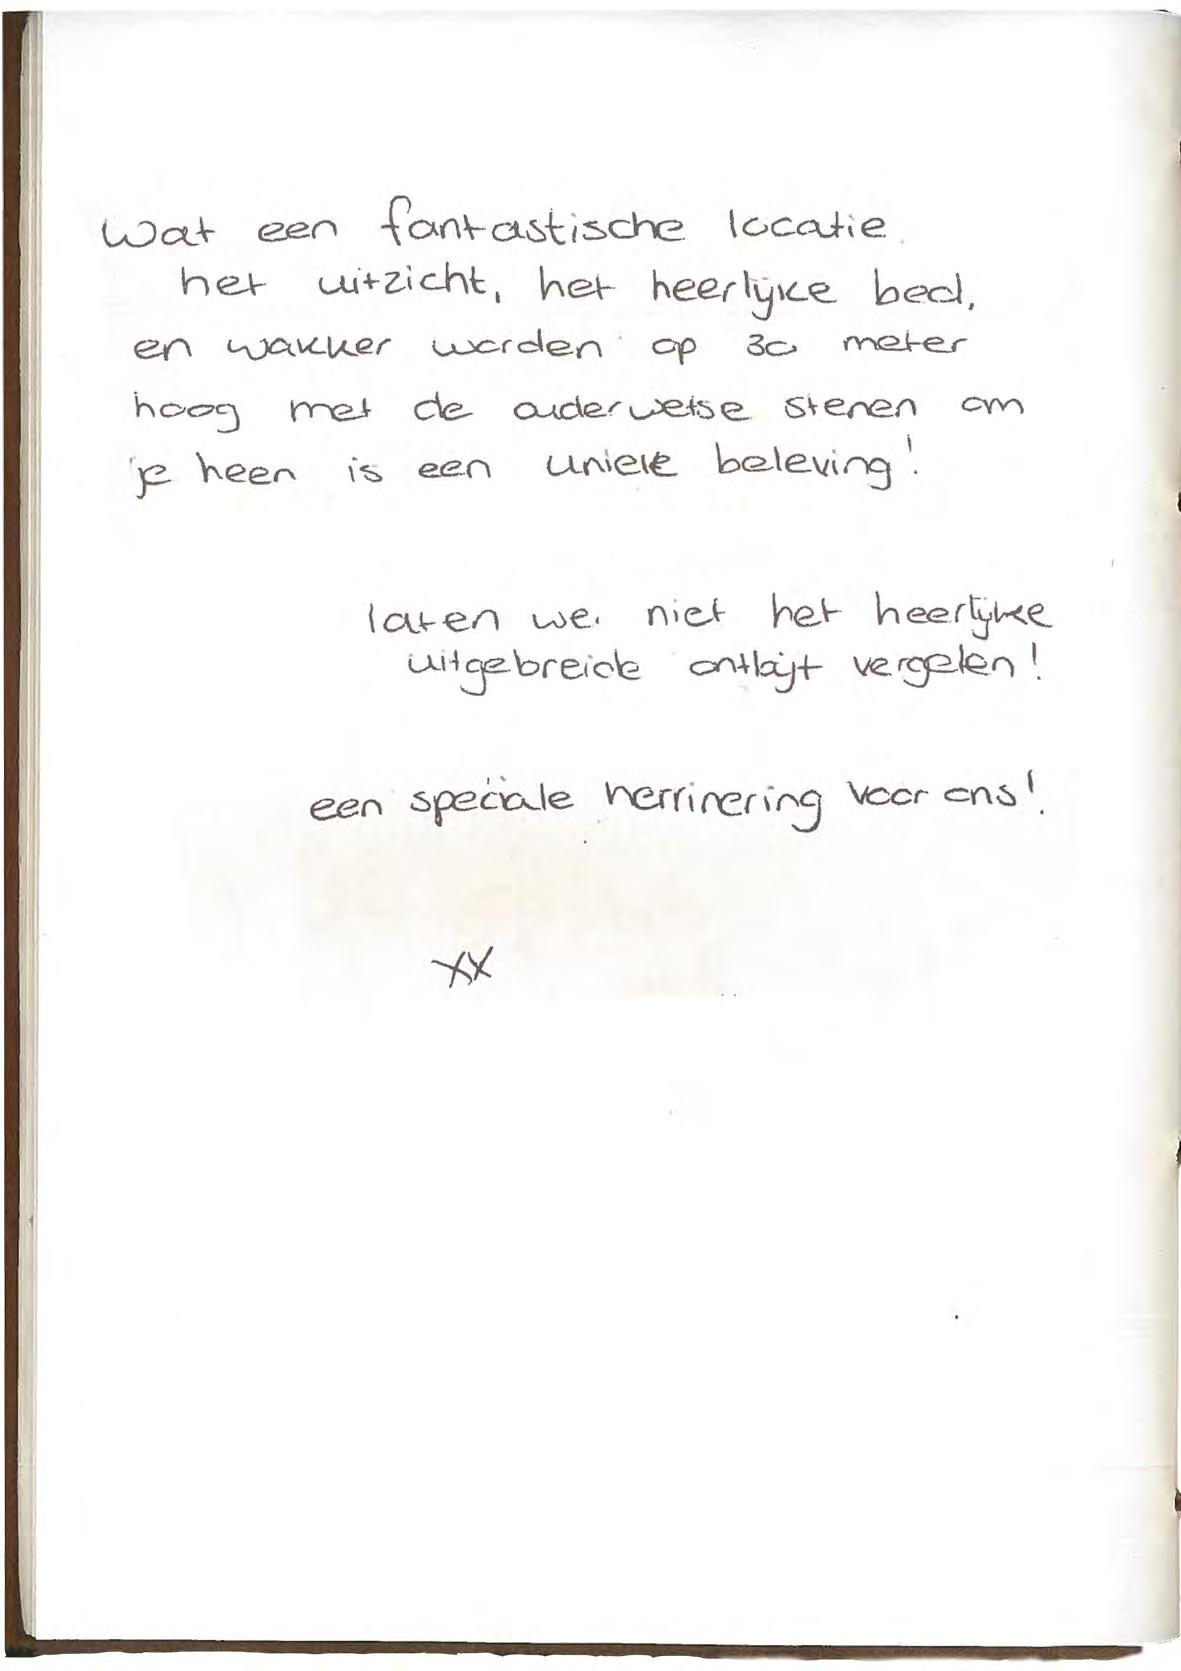 Wat een fantastische locatie.
het uitzicht, het heerlijke bed,
en wakker worden op 30 meter
hoog met de ouderwetse stenen om
je heen is een uniek beleving!
laten we niet het heerlijke
uitgebreide ontbijt vergeten!
een speciale herrinering voor ons!
xx